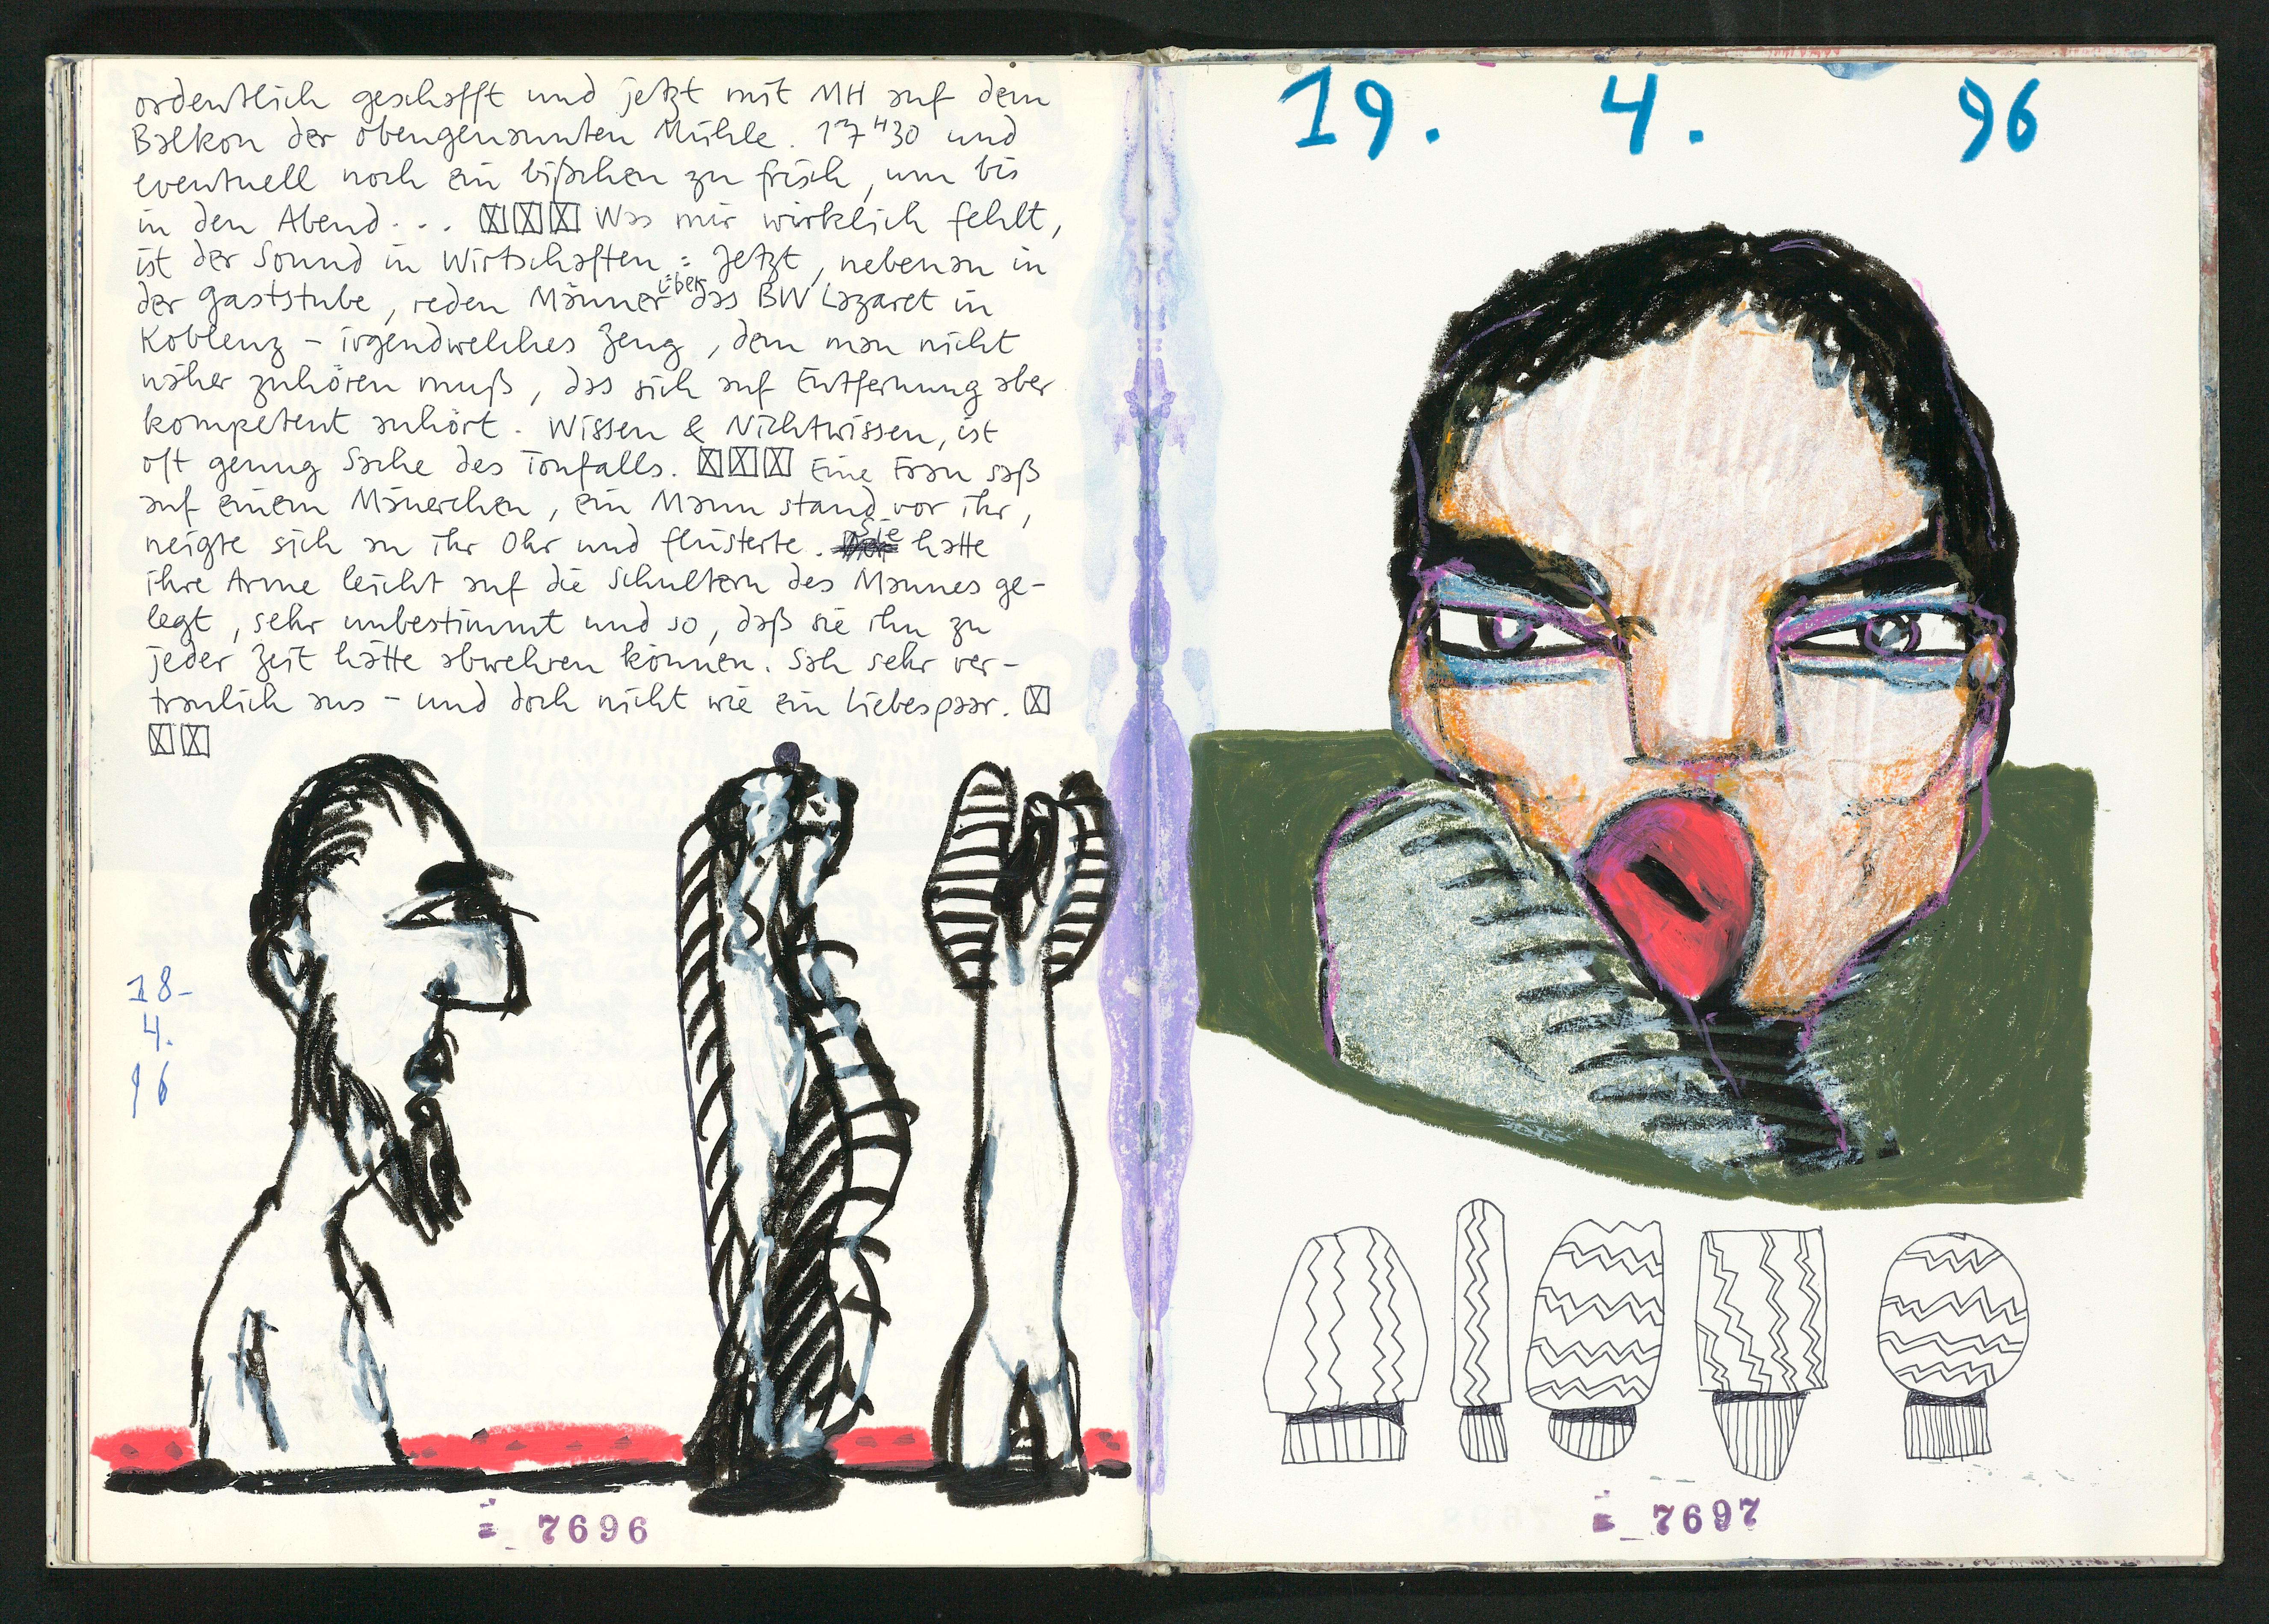 ordentlich geschafft und jetzt mit MH auf dem
Balkon der obengenannten Mühle. 17 H 30 und
eventuell noch ein bißchen zu frisch, um bis
in den Abend... ☒☒☒ Was mir wirklich fehlt,
ist der Sound in Wirtschaften : Jetzt, nebenan in
der Gaststube, reden Männer über das BW Lazaret in
Koblenz – irgendwelches Zeug, dem man nicht
näher zuhören muß, das sich auf Entfernung aber
kompetent anhört. Wissen & Nichtwissen, ist
oft genug Sache des Tonfalls. ☒☒☒ Eine Frau saß
auf einem Mäuerchen, ein Mann stand vor ihr,
neigte sich an ihr Ohr und flüsterte. Sie hatte
ihre Arme leicht auf die Schultern des Mannes ge-
legt, sehr unbestimmt und so, daß sie ihn zu
jeder Zeit hätte abwehren können. Sah sehr ver-
traulich aus – und doch nicht wie ein Liebespaar. ☒
☒☒
18-
4.
96
7696
19. 4. 96
7697